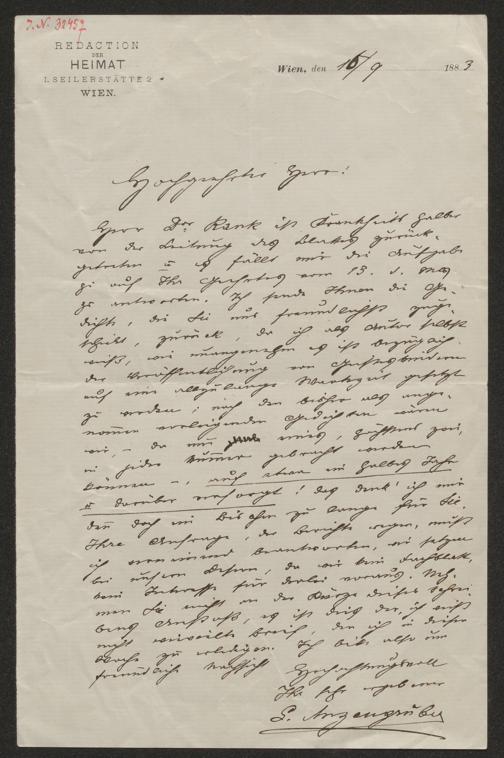 J. N. 32457
REDACTION
DER
HEIMAT
I. SEILERSTÄTTE 2
WIEN.
Wien, den 16/9 1883
Hochgeehrter Herr!
Herr Dr. Rank ist Krankheits halber
von der Leitung des Blattes zurück-
getreten u es fällt mir die Aufgabe
zu auf Ihr Geehrtes vom 13. d. Mts
zu antworten. Ich sende Ihnen die Ge-
dichte, die Sie uns freundlichst zuge-
schickt, zurück, da ich als Autor selbst
weiß, wie unangenehm es ist bezüglich
der Veröffentlichung von Geisteskindern
auf eine allzulange Wartezeit gesetzt
zu werden; nach den bisher als ange-
nommen vorliegenden Gedichten wären
wir, – da nur eines, höchstens zwei,
in jeder Nummer gebracht werden
können –, auf etwa ein halbes Jahr
u darüber versorgt! das denk' ich mir
denn doch ein bischen zu lange für Sie.
Ihre Anfrage, der Berichte wegen, muß
ich verneinend beantworten, wir setzen
bei unsern Lesern, da wir kein Fachblatt,
kein Interesse für derlei voraus. Neh-
men Sie nicht an der Kürze dieses Schrei-
bens Anstoß, es ist dies der, ich weiß
nicht wievielte Brief, den ich in dieser
Woche zu erledigen. Ich bitte also um
freundliche Nachsicht
Hochachtungsvoll
Ihr sehr ergebener
L. Anzengruber